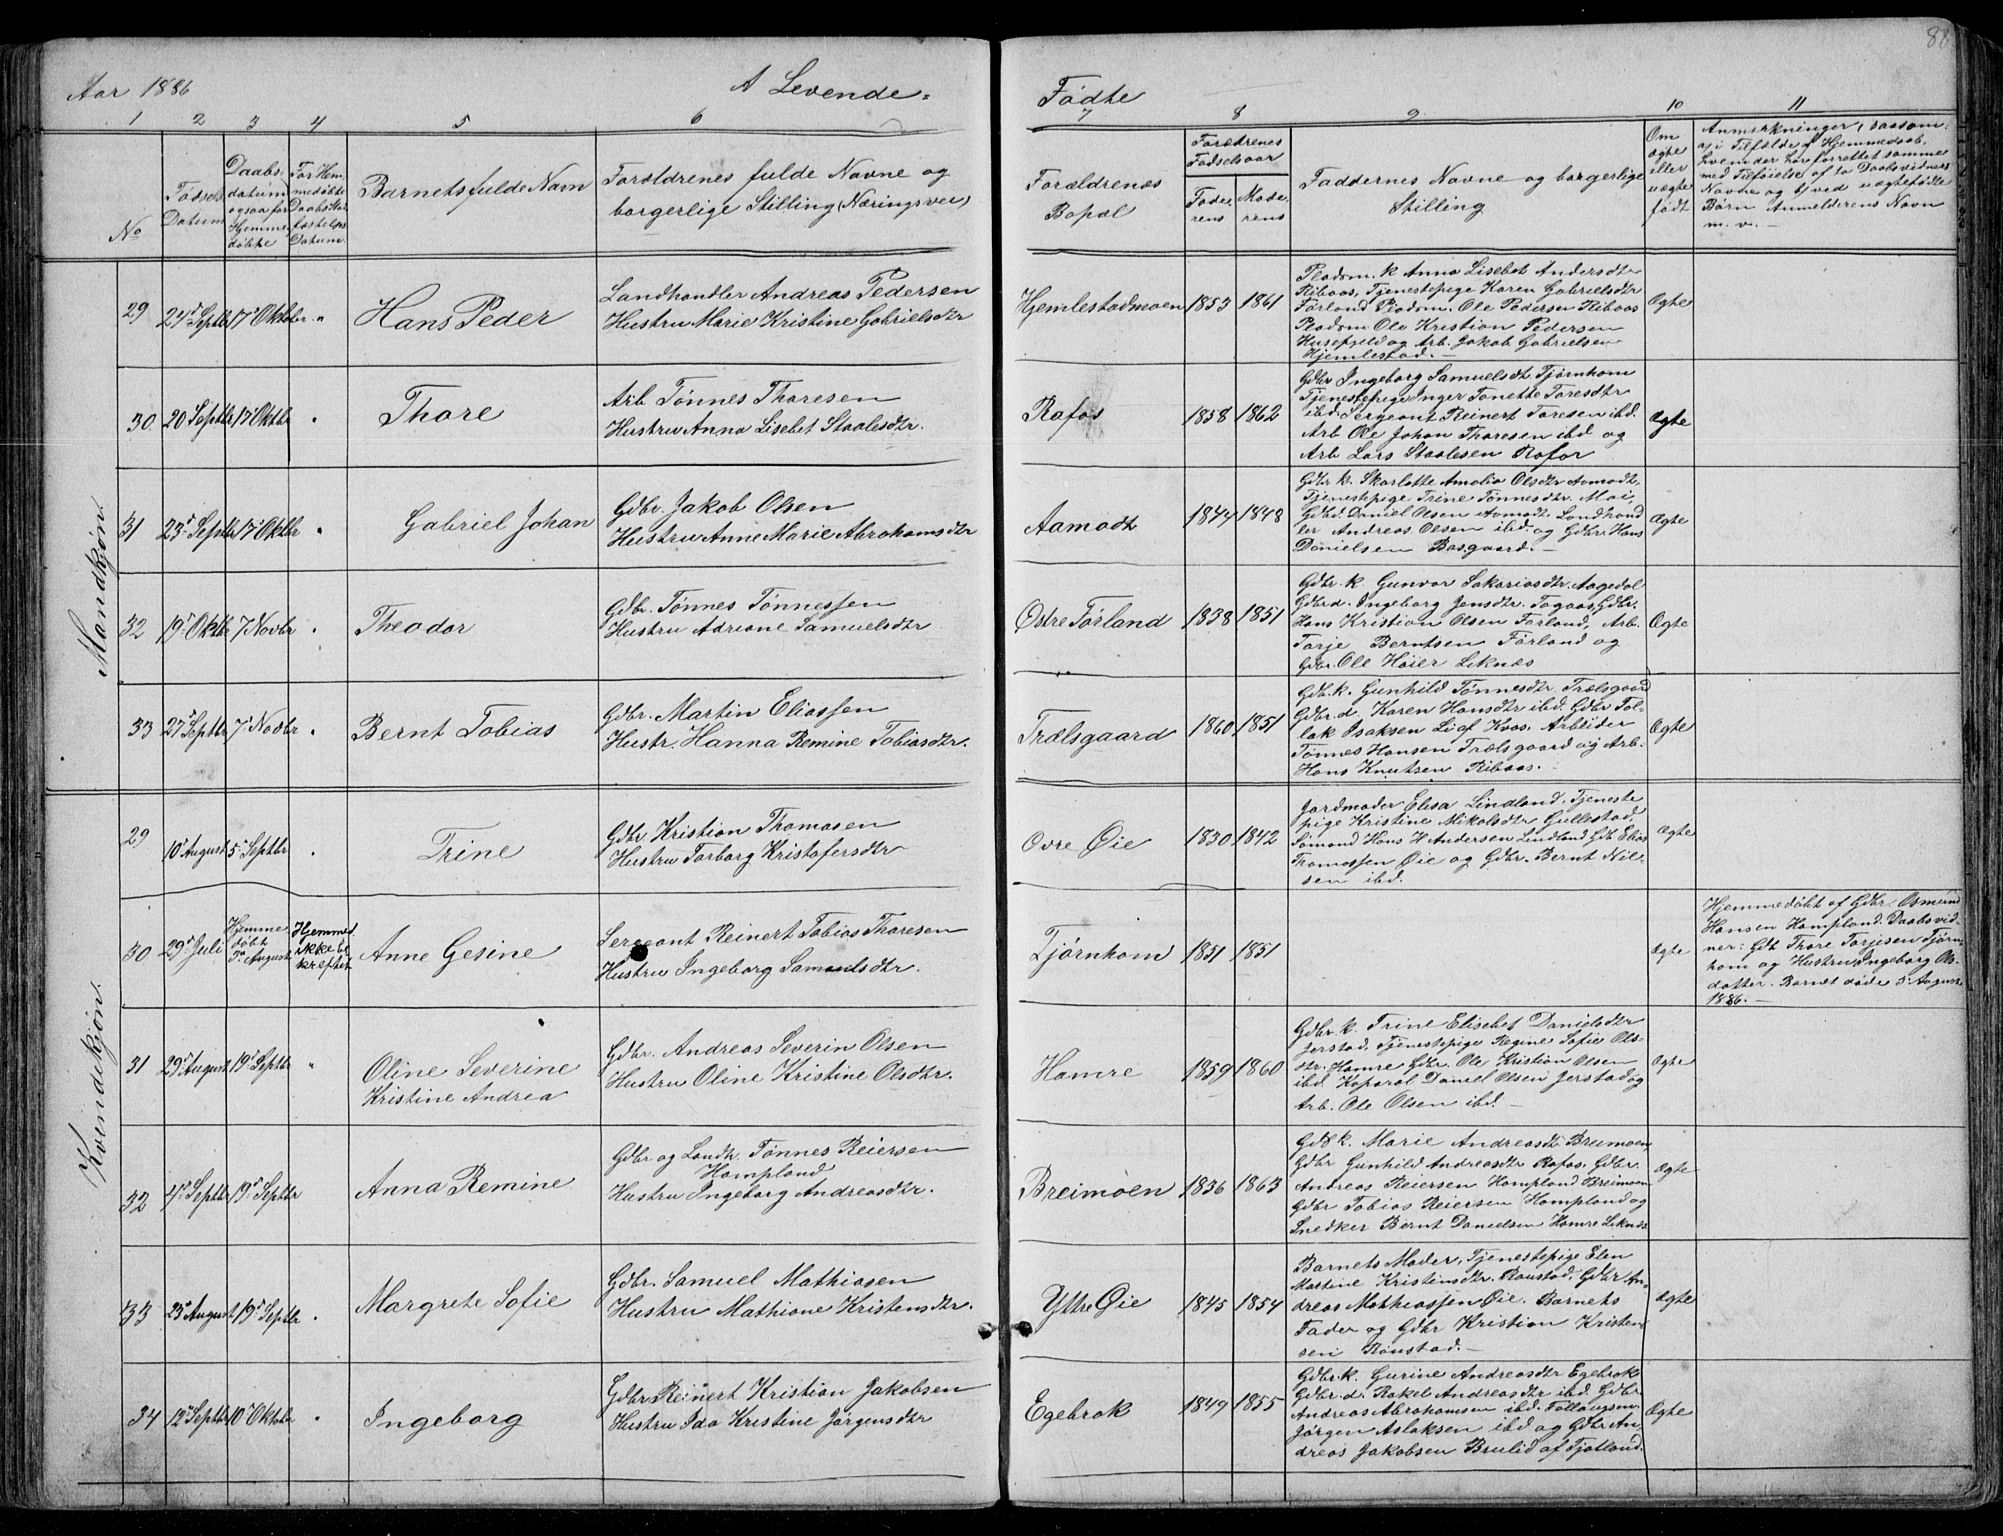 Aar 1886
A Levende-
Fødte
88
1 2 3 4 5 6
7 8 9 10 11
No
Fødsels
Datum
Daabs-
datum
ogsaa for
Hjemme
døbte
For Hjem
medøbte
Daabs
Datum.
Barnets fulde Navn
Forældrenes fulde Navne og
borgerlige Stilling (Næringsvei)
Forældrenes
Bopæl
Forældrenes
Fødselsaar
Fade-
rens
Mode-
rens
Faddernes Navne og borgerlige
Stilling
Om
ægte
eller
uægte
født
Anmærkninger, saasom:
a, i Tilfælde af Hjemmedaab,
hvem der har forrettet samme
med Tilføielse af to Daabsvidners
Navne og b, ved uægtefødte
Børn Anmelderens Navn
m. v. -
Mandkjøn.
29
24de Septbr
17de Oktbr
Hans Peder
Landhandler Andreas Pedersen
Hustru Marie Kristine Gabrielsdtr
Hjemlestadmoen
1853
1861
Pladsm. k Anna Lisebet Andersdtr
Ribaas, Tjenestepige Karen Gabrielsdtr
Førland Pladsm. Ole Pedersen Ribaas
Pladsm Ole Kristian Pedersen
Husefjeld og Arb. Jakob Gabrielsen
Hjemlestad. -
Ægte
30
20 Septbr
17 Oktbr
Thore
Arb Tønnes Thoresen
Hustru Anna Lisebet Staalesdtr.
Rafos
1858
1862
Gdbr Ingeborg Samuelsdtr Tjørnhom
Tjenestepige Inger Tonette Toresdtr
ibd. Sergeant Reinert Toresen ibd.
Arb Ole Johan Thoresen ibd og
Arb Lars Staalesen Rafos
Ægte
31
23de Septbr
17de Oktbr
Gabriel Johan
Gdbr. Jakob Olsen
Hustru Anne Marie Abrahamsdtr
Aamodt
1844
1848
Gdbr k. Skarlotte Amalia Olsdtr Aamodt,
Tjenestepige Trine Tønnesdtr. Moi,
Gdbd. Daniel Olsen Aamodt. Landhand
ler Andreas Olsen ibd. og Gdbr. Hans
Danielsen Bosgaard. -
Ægte
32
19de Oktbr
7 Novbr
Theodor
Gdbr. Tønnes Tønnessen
Hustru Adriane Samuelsdtr
Østre Førland
1838
1851
Gdbr. k. Gunvor Sakariasdtr. Aagedal
Gdbrd. Ingeborg Jensdtr. Tagaas, Gdbr.
Hans Kristian Olsen Førland, Arb.
Tarje Berntsen Førland og
Gdbr. Ole Høier Liknæs
Ægte
33
27de Septbr
7de Novbr
Bernt Tobias
Gdbr. Martin Eliassen
Hustr. Hanna Remine Tobiasdtr.
Trælsgaard
1860
1851
Gdbr. k. Gunhild Tønnesdtr Trælsgaard
Gdbr. d. Karen Hansdtr ibd. Gdbr Tol-
lak Isaksen Li af Kvas. Arbeider
Tønnes Hansen Trælsgaard og Arb.
Hans Knutsen Ribaas.
Ægte
Kvindekjøn.
29
10de August
5te Septbr
Trine
Gdbr Kristian Thomasen
Hustru Torborg Kristofersdtr
Øvre Øie
1830
1842
Jordmoder Elisa Lindland. Tjeneste
pige Kristine Mikalsdtr Gullestad,
Sømand Hans H Andersen Lindland Gdb Elias
Thomassen Øie og Gdbr. Bernt Nil-
sen ibd.
Ægte
30
29de Juli
Hjemme
døbt
3de August
Hjemmed.
ikke be
kreftet
Anne Gesine
Sergeant Reinert Tobias Thoresen
Hustru Ingeborg Samuelsdtr.
Tjørnhom
1851
1851
Ægte
Hjemmedøbt af Gdbr. Osmund
Hansen Hompland. Daabsvid
ner: Gdb Thore Torjesen Tjørn
hom og Hustru Ingeborg Ols-
datter. Barnet døde 5 August
1886. -
31
29de August
19de Septbr
Oline Severine
Kristine Andrea
Gdbr. Andreas Severin Olsen
Hustru Oline Kristine Olsdtr.
Homre
1859
1860
Gdbr. k. Trine Elisebet Danielsdtr
Jerstad, Tjenestepige Regine Sofie Ols-
dtr. Homre Gdbr. Ole Kristian Olsen
ibd. Koporal Daniel Olsen Jerstad og
Arb. Ole Olsen ibd. -
Ægte
32
4de Septbr
19de Septbr
Anna Remine
Gdbr og Landh. Tønnes Reiersen
Hompland
Hustru Ingeborg Andreasdtr.
Breimoen
1836
1863
Gdb k. Marie Andreasdtr Breimoen,
Gdbr Gunhild Andreasdtr Rafos. Gdbr.
Andreas Reiersen Hompland Breimoen
Gdbr Tobias Reiersen Hompland og
Snedker Bernt Danielsen Homre Liknæs
Ægte
33
23de August
19de Septbr
Margrete Sofie
Gdbr. Samuel Mathiasen
Hustru Mathione Kristensdtr.
Yttre Øie
1845
1854
Barnets Moder, Tjenestepige Elen
Martine Kristensdtr. Raustad, Gdbr An-
dreas Mathiassen Øie. Barnets
Fader og Gdbr Kristian Kristen-
sen Raustad. -
Ægte
34
12te Septbr
10de Oktobr
Ingeborg
Gdbr Reinert Kristian Jakobsen
Hustru Ida Kristine Jørgensdtr
Egebrok
1849
1855
Gdbr. k. Gurine Andreasdtr Egebrok
Gdbr. d. Rakel Andreasdtr ibd. Gdbr
Andreas Abrahamsen ibd.
Jørgen Aslaksen ibd og Gdbr An-
dreas Jakobsen Brulid af Fjotland.
Ægte